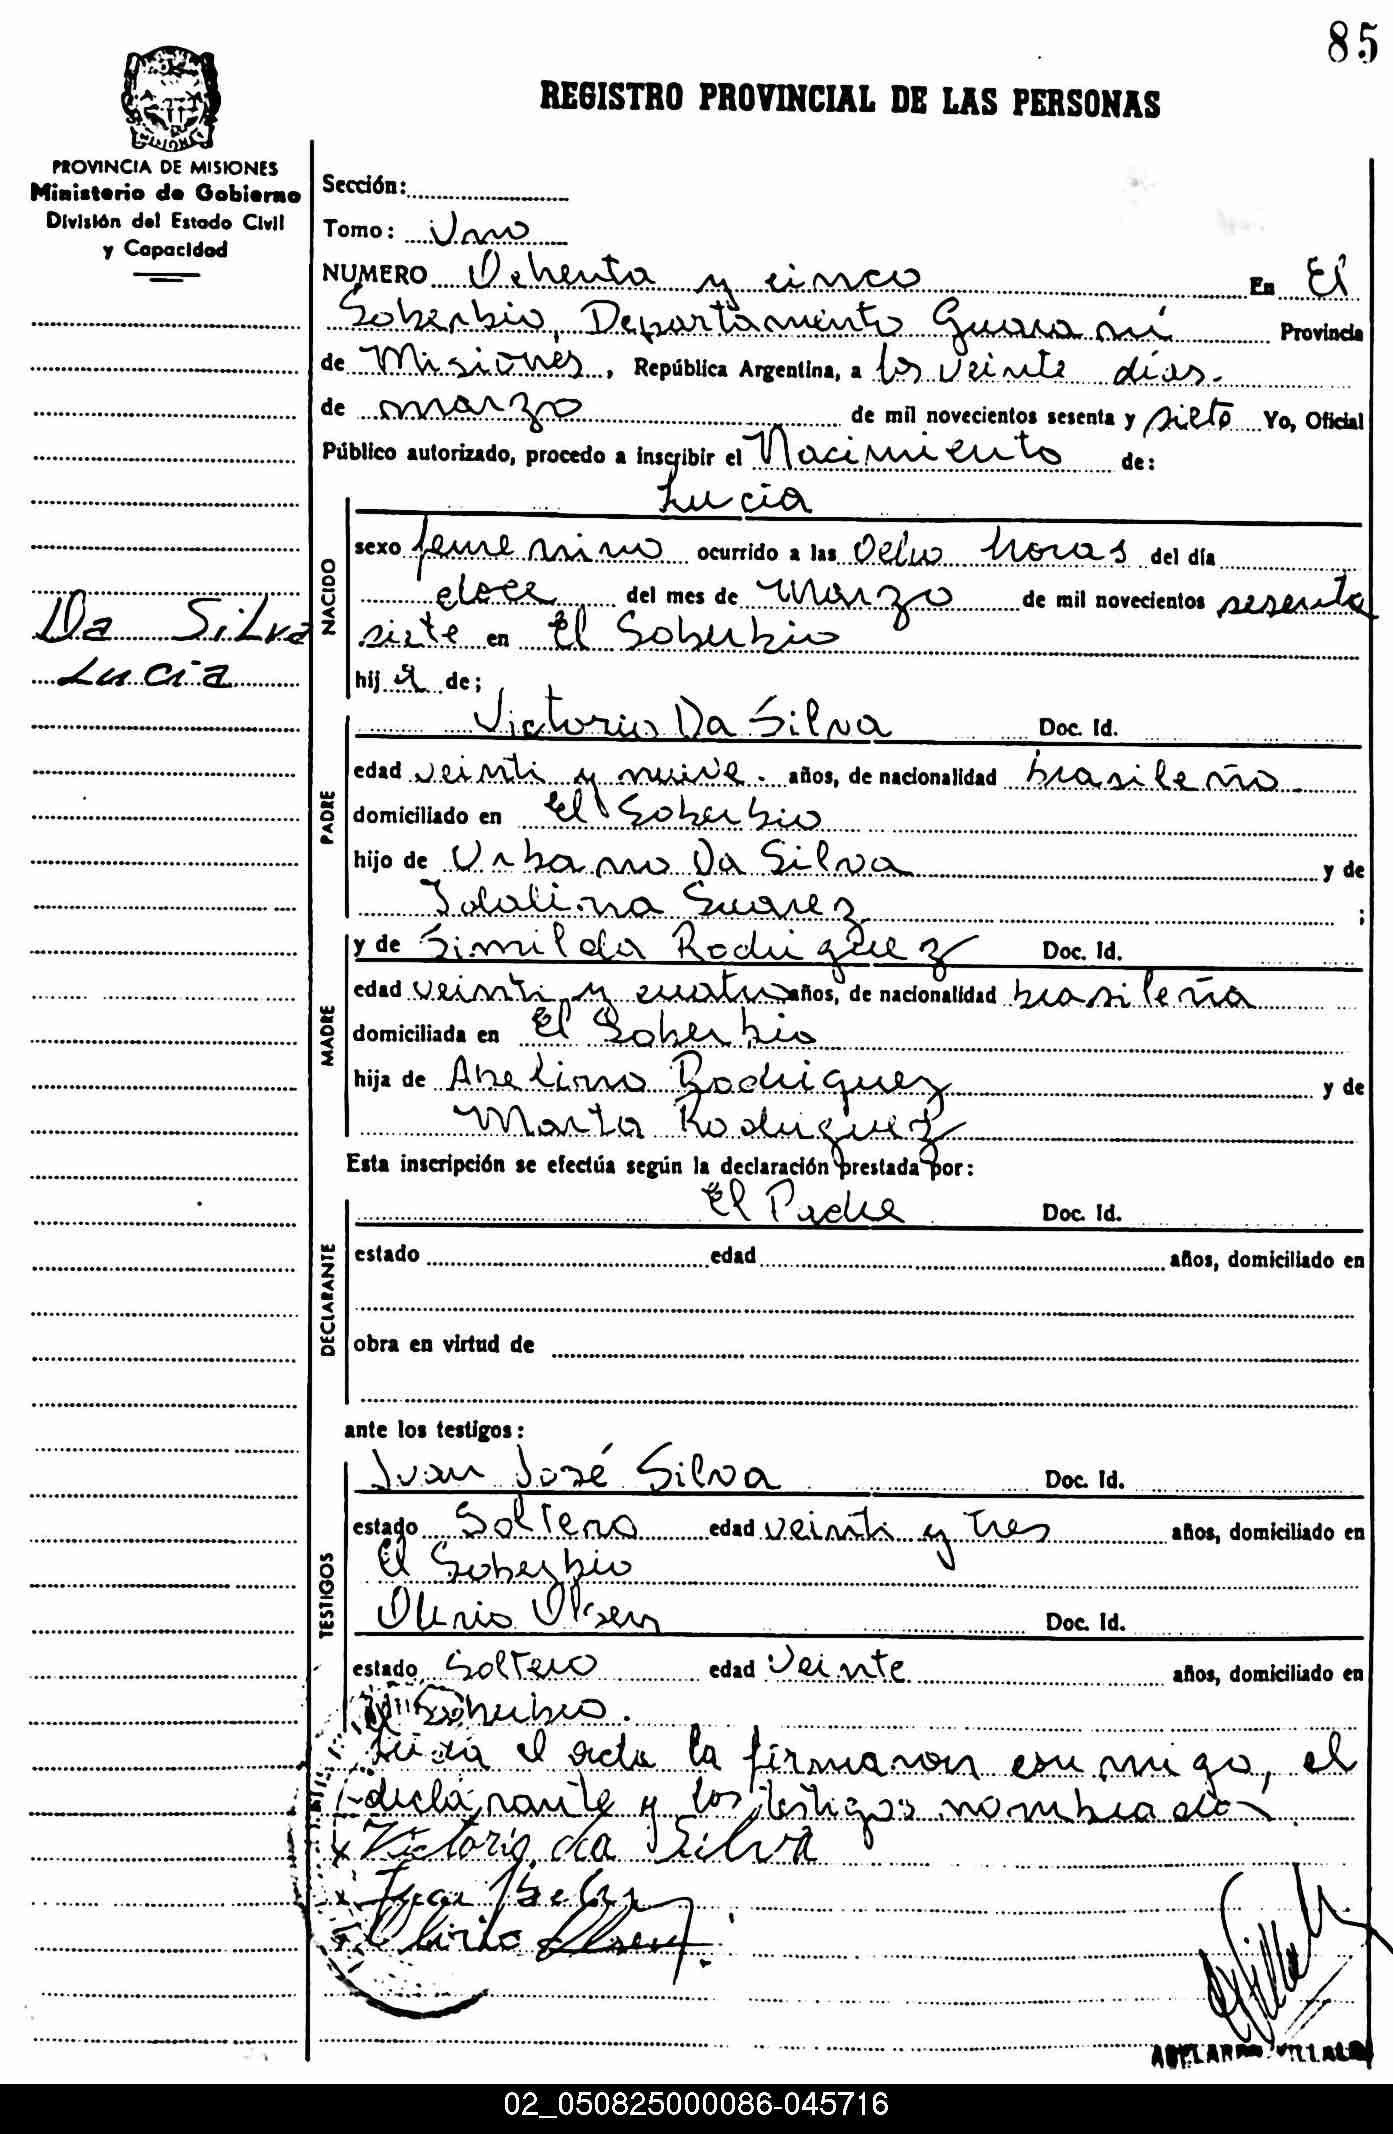 85
REGISTRO PROVINCIAL DE LAS PERSONAS
PROVINCIA DE MISIONES
Ministerio de Gobierno
División del Estado Civil
y Capacidad
Sección:
Tomo: Uno
NUMERO Ochenta y cinco En El
Soberbio, Departamento Guaraní Provincia
de Misiones, República Argentina, a los veinte días.
de marzo de mil novecientos sesenta y siete Yo, Oficial
Público autorizado, procedo a inscribir el Nacimiento de:
Lucia
NACIDO
sexo femenino ocurrido a las ocho horas del día
doce del mes de marzo de mil novecientos sesenta
siete en El Soberbio
Da Silva
Lucia
hija de;
PADRE
Victorio Da Silva Doc. Id.
edad veinti y nueve. años, de nacionalidad brasileño.
domiciliado en El Soberbio
hijo de Urbano Da Silva y de
Suarez ;
MADRE
y de Similda Rodriguez Doc. Id.
edad veinti y cuatro años, de nacionalidad brasileña
domiciliada en El Soberbio
hija de Avelino Rodriguez y de
Marta Rodriguez
Esta inscripción se efectúa según la declaración prestada por:
DECLARANTE
El Padre Doc. Id.
estado edad años, domiciliado en
obra en virtud de
ante los testigos:
TESTIGOS
Juan José Silva Doc. Id.
estado Soltero edad veinti y tres años, domiciliado en
El Soberbio
Olsen Doc. Id.
estado Soltero edad veinte años, domiciliado en
El Soberbio.
Leida el acta la firmaron conmigo, el
declarante y los testigos nombrados
x Victorio da Silva
x Juan
x Olsen
ABELARDO VILLALBA
02_050825000086-045716